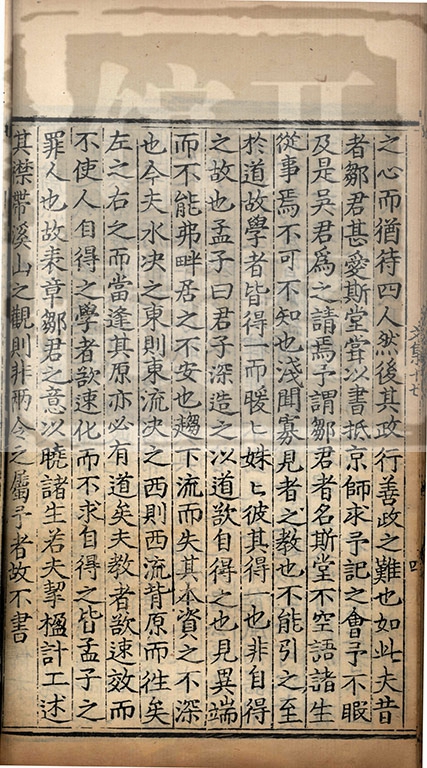 之心而猶待四人然後其政行善政之難也如此夫昔
者鄒君甚愛斯堂嘗以書抵京師求予記之會予不暇
及是吳君爲之請焉予謂鄒君者名斯堂不空語諸生
從事焉不可不知也淺聞寡見者之教也不能引之至
於道故學者皆得一而暖〻姝〻彼其得一也非自得
之故也孟子曰君子深造之以道欲自得之也見異端
而不能弗畔居之不安也趨下流而失其本資之不深
也今夫水决之東則東流决之西則西流背原而徃矣
左之右之而當逢其原亦必有道矣夫教者欲速效而
不使人自得之學者欲速化而不求自得之皆孟子之
罪人也故表章鄒君之意以曉諸生若夫挈楹計工述
其襟帶溪山之觀則非兩令之屬予者故不書
四